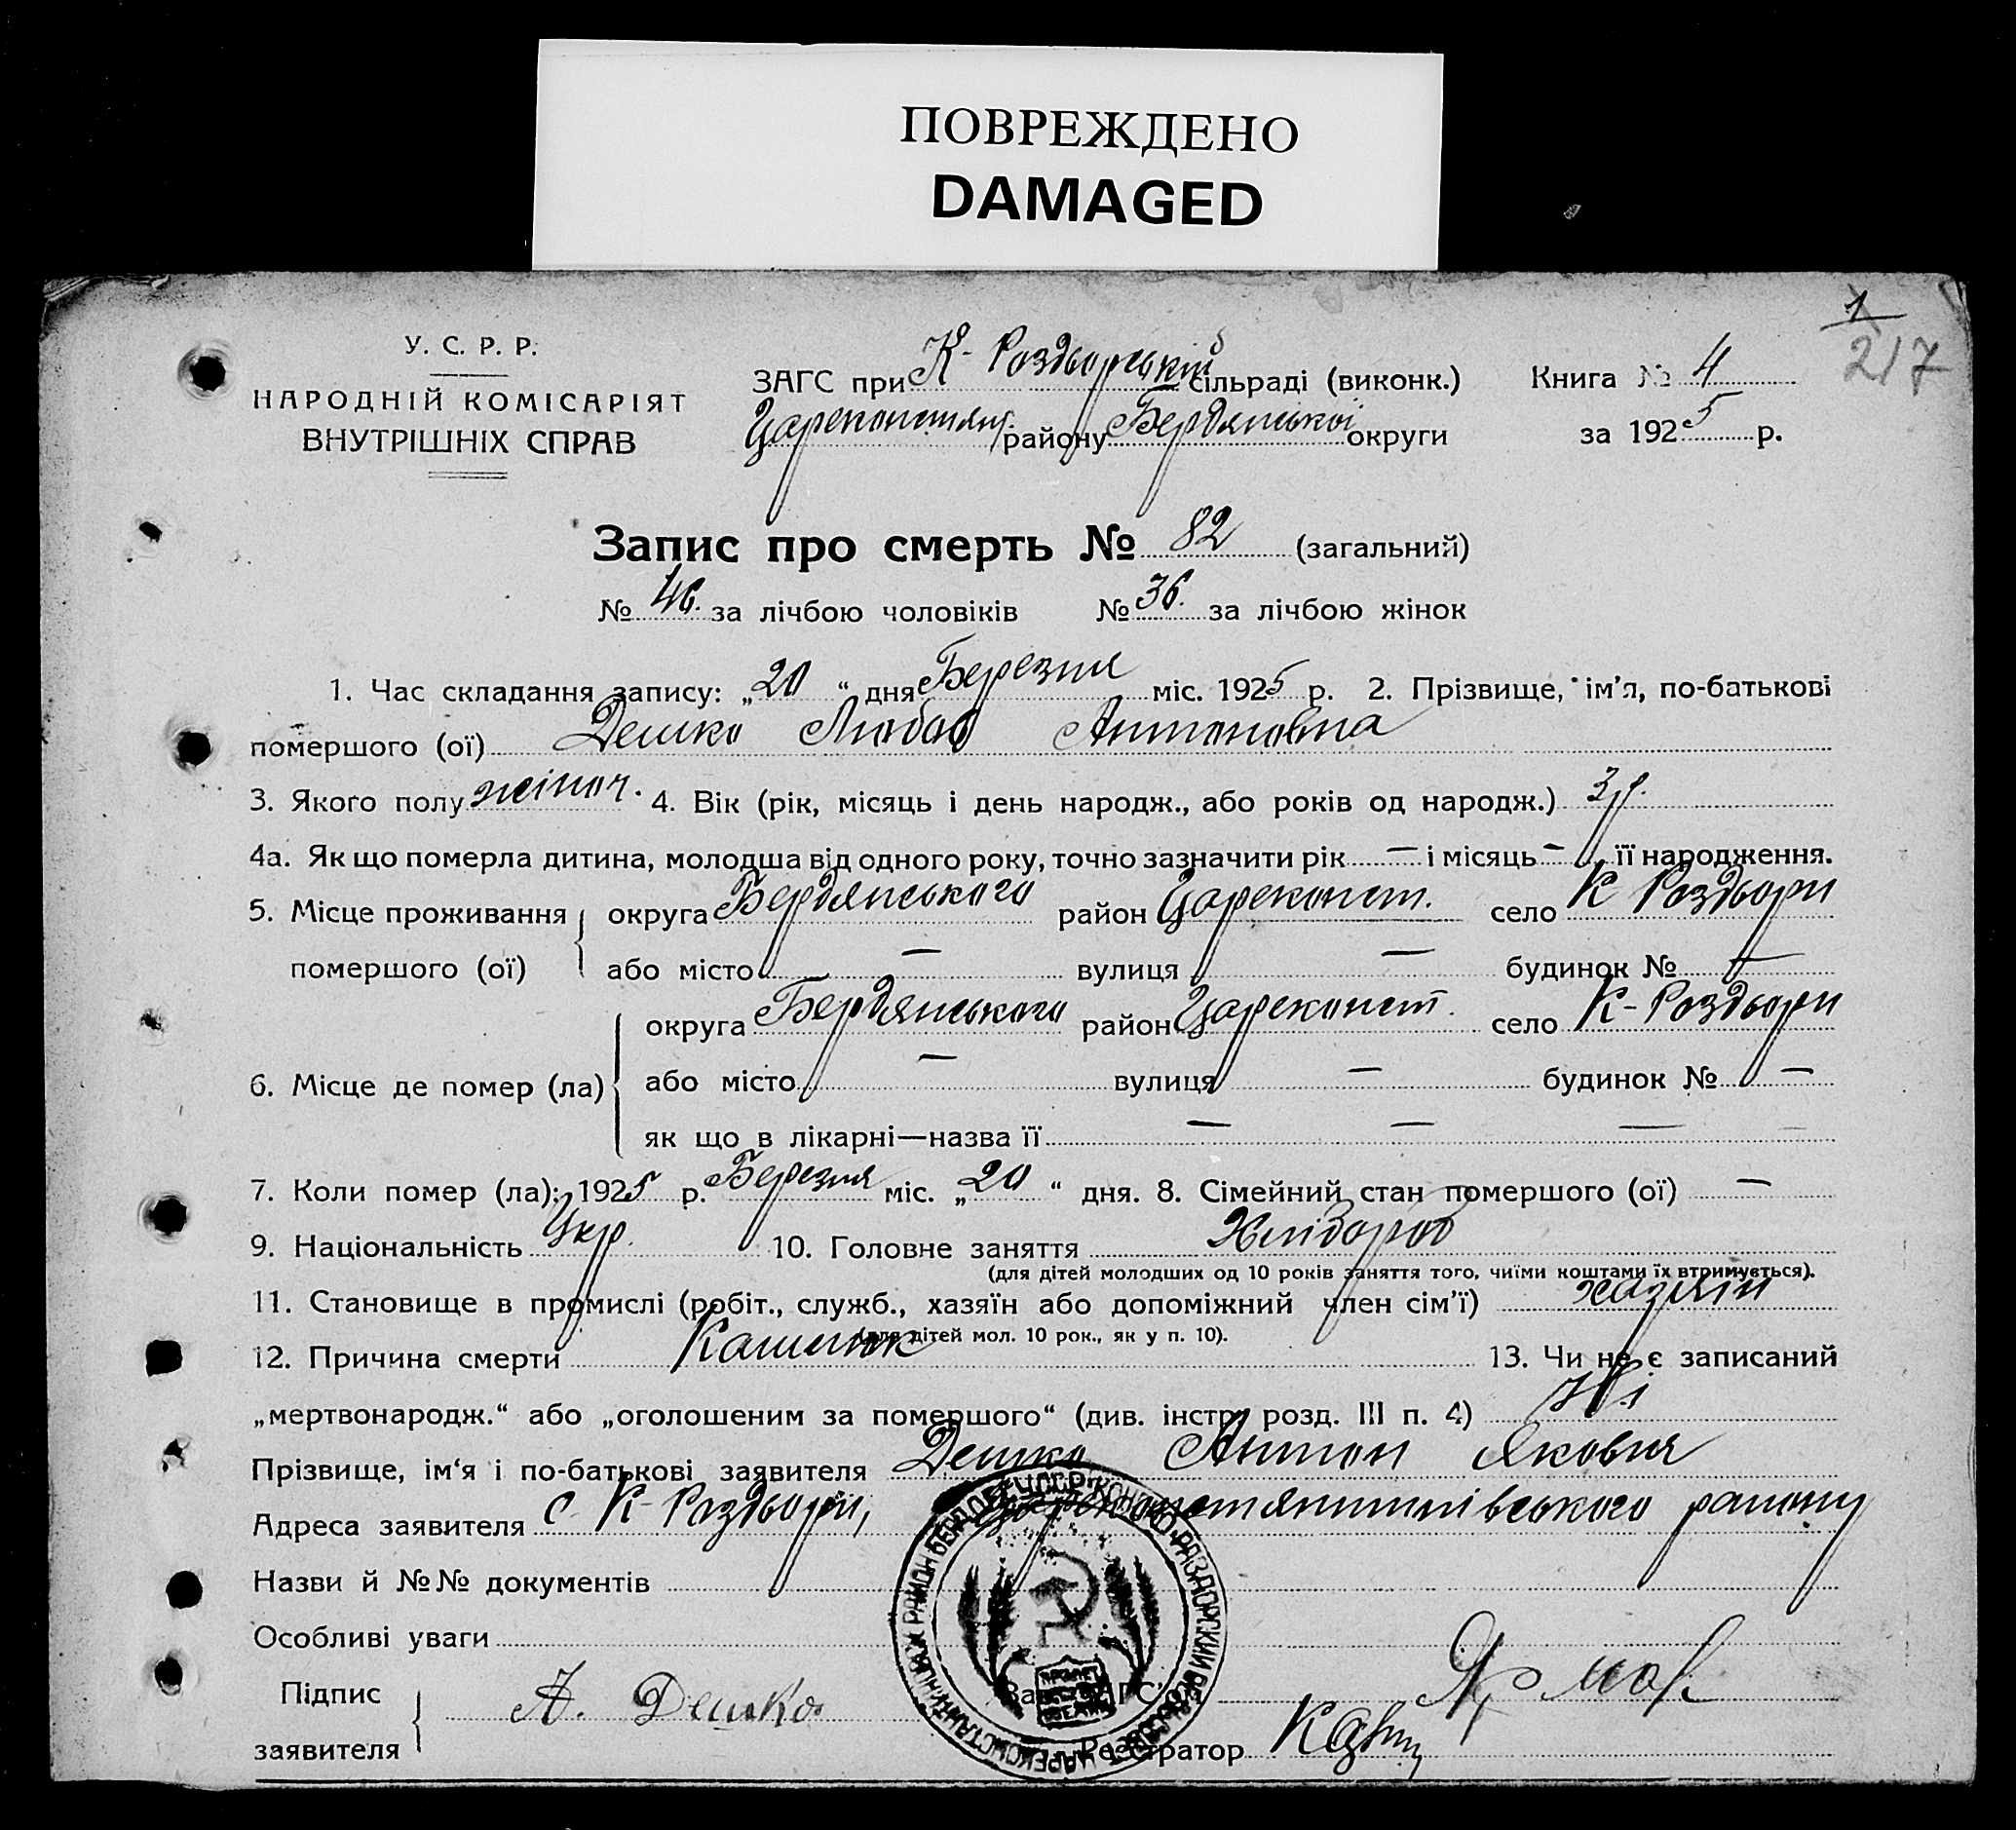 ПОВРЕЖДЕНО
DAMAGED
1
217
У. С. Р. Р.
НАРОДНІЙ КОМІСАРІЯТ
ВНУТРІШНІХ СПРАВ
ЗАГС при К-Роздорській сільраді (виконк.) Книга № 4
Цареконстянт. району Бердянської округи за 1925 р.
Запис про смерть № 82 (загальний)
№ 46. за лічбою чоловіків № 36. за лічбою жінок
1. Час складання запису: „20“ дня Березня міс. 1925 р. 2. Прізвище, ім'я, по-батькові
помершого (ої) Дешко Любов Антоновна
3. Якого полу жіноч. 4. Вік (рік, місяць і день народж., або років од народж.) 3 р.
4а. Як що померла дитина, молодша від одного року, точно зазначити рік — і місяць — її народження.
5. Місце проживання помершого (ої) округа Бердянського район Цареконст. село К Роздори
або місто — вулиця — будинок № —
6. Місце де помер (ла) округа Бердянського район Цареконст. село К-Роздори
або місто — вулиця — будинок № —
як що в лікарні—назва її — — — —
7. Коли помер (ла): 1925 р. Березня міс. „20“ дня. 8. Сімейний стан помершого (ої) —
9. Національність Укр. 10. Головне заняття Хлібороб
(для дітей молодших од 10 років заняття того, чиїми коштами їх втримується).
11. Становище в промислі (робіт., служб., хазяїн або допоміжний член сім'ї) хазяїн
(для дітей мол. 10 рок., як у п. 10).
12. Причина смерти Кашлюк 13. Чи не є записаний
„мертвонародж.“ або „оголошеним за помершого“ (див. інстр. розд. III п. 4) Ні
Прізвище, ім'я і по-батькові заявителя Дешко Антон Яковля
Адреса заявителя с. К-Роздори, Цареконстянтинівського району
Назви й №№ документів
Особливі уваги
Підпис заявителя А. Дешко
Реєстратор